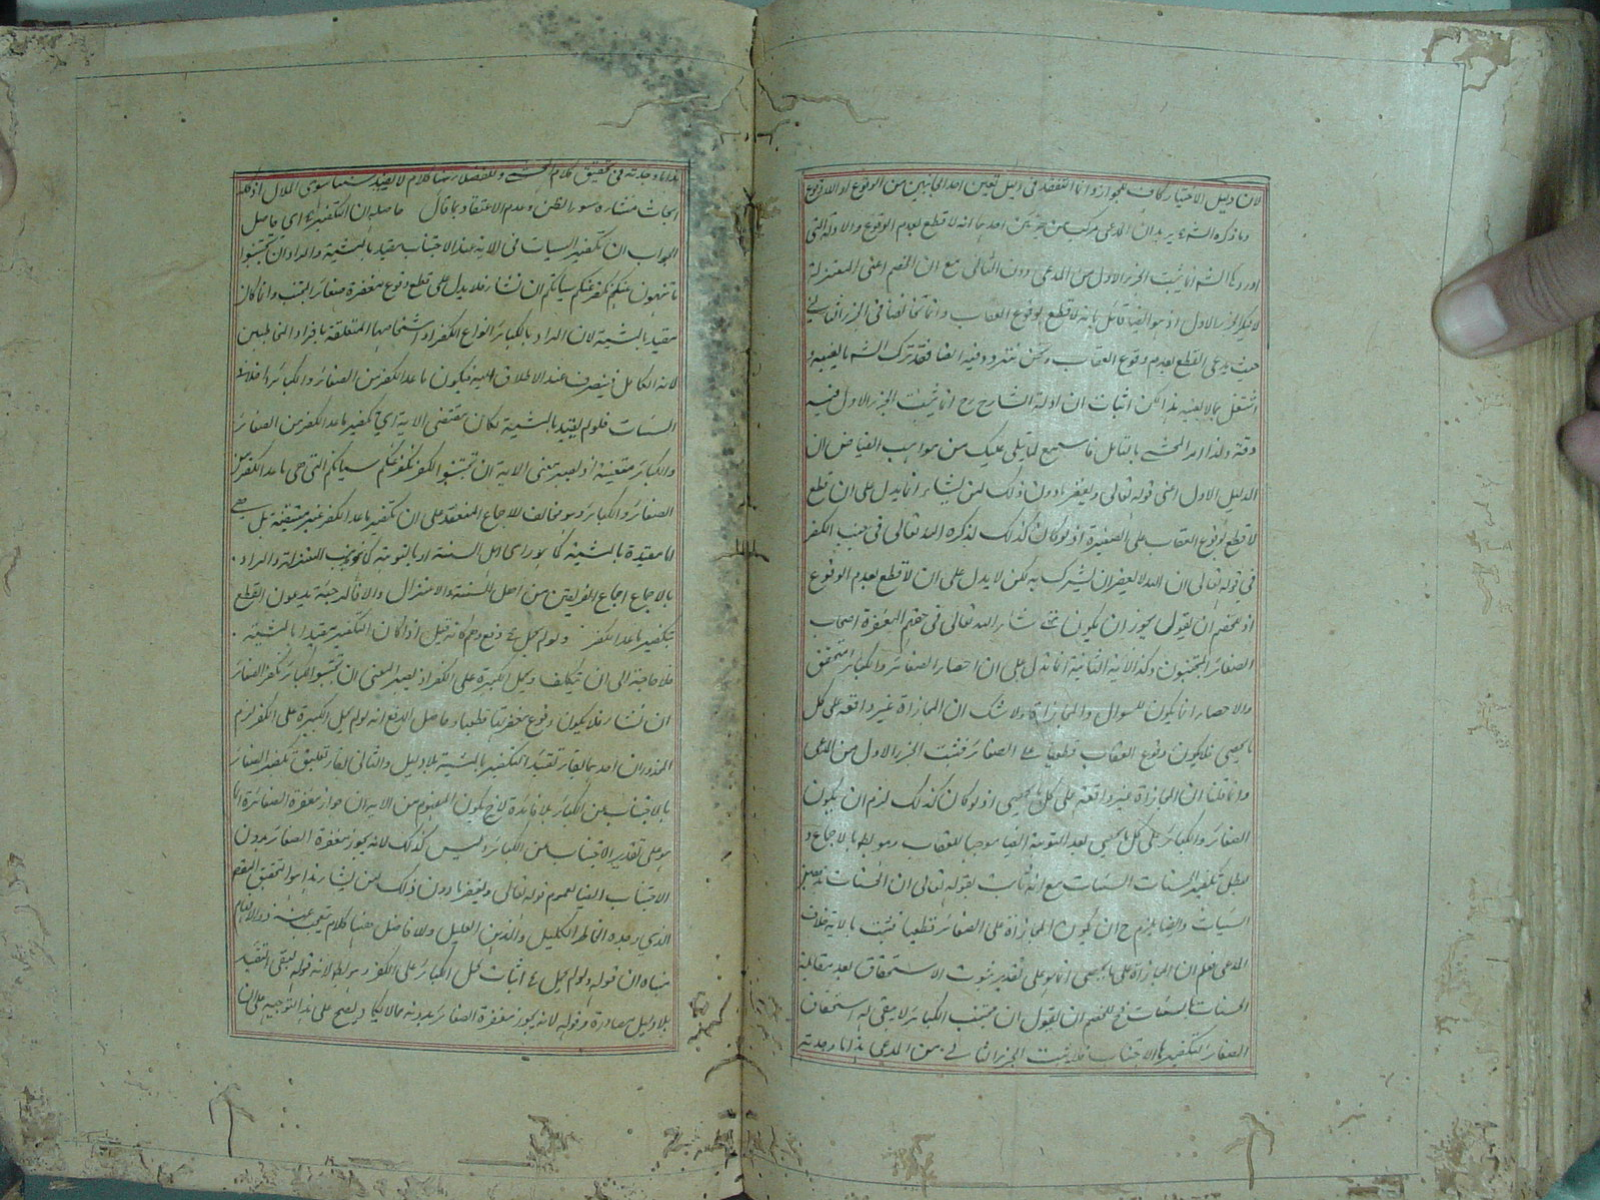 لان دليل الاختيار كاف للجواز وانما التفقد في دليل تعين احد الجانبين من الوقوع او اللاوقوع
وما ذكره الشم يريد ان المدعى مركب من جزئين احدهما انه لا قطع لعدم الوقوع والادلة التي
اوردها الشم انما يثبت الجزء الاول من المدعى دون الثاني مع ان الخصم اعنى المعتزلة
لا ينكر الجزء الاول اذ هو ايضا قائل بانه لا قطع بوقوع العقاب وانما تخالفنا في الجزء الثاني
حيث يدعى القطع بعدم وقوع العقاب ونحن نتردد فيه ايضا فقد ترك الشم ما يعنيه و
اشتغل بما لا يعنيه هذا لكن اثبات ان ادلة الشارح رح انما يثبت الجزء الاول فيه
دقة ولذا امر المحشي بالتامل فاستمع لما يتلى عليك من مواهب الفياض ان
الدليل الاول اعنى قوله تعالى ويغفر ما دون ذلك لمن يشاء انما يدل على ان قطع
لا قطع لوقوع العقاب على الصغيرة اذ لو كان كذلك لذكره الله تعالى في جنب الكفر
في قوله تعالى ان الله لا يغفر ان يشرك به لكن لا يدل على ان لا قطع بعدم الوقوع
اذ للخصم ان يقول يجوز ان يكون من شاء الله تعالى في حقهم المغفرة اصحاب
الصغائر المجتنبون وكذا الاية الثانية انما تدل على ان احصاء الصغائر والكبائر متحقق
والاحصاء انما يكون للسوال والمجازاة ولا شك ان المجازاة غير واقعة على كل
ما يحصى فلا يكون وقوع العقاب قطعيا على الصغائر فثبت الجزء الاول من المدعى
وانما قلنا ان المجازاة غير واقعة على كل ما يحصى اذ لو كان كذلك لزم ان يكون
الصغائر والكبائر على كل ما يحصى بعد التوبة ايضا موجبا للعقاب وهو بط بالاجماع و
لبطل تكفير الحسنات السيئات مع انه ثابت بقوله تعالى ان الحسنات يذهبن
السيات وايضا يلزم ح ان يكون المجازاة على الصغائر قطعيا فثبت بالاية خلاف
المدعى فعلم ان المجازاة على ما يحصى انما هو على تقدير ثبوت الاستحقاق بعد مقابلة
الحسنات بالسيئات فح للخصم ان يقول ان مجتنب الكبائر لا يبقى له استحقاق
الصغائر لتكفيرها بالاجتناب فلا يثبت الجزء الثاني من المدعى هذا ما وجدته
هذا ما وجدته في تحقيق كلام المحشي وللفضلاء ههنا كلام لا يفيد شيئا سوى الملال اذ تلك
ابحاث منشاءه سوء الظن وعدم الاعتقاد بما قال حاصله ان التكفير اي حاصل
الجواب ان تكفير السيات في الاية عند الاجتناب مقيد بالمشية والمراد ان تجتنبوا
ما تنهون عنه نكفر عنكم سياتكم ان نشاء فلا يدل على قطع وقوع مغفرة صغائر المجتنب وانما كان
مقيدا بالمشية لان المراد بالكبائر انواع الكفر او اشخاصها المتعلقة بافراد المخاطبين
لانه الكامل فينصرف عند الاطلاق اليه فيكون ما عدا الكفر من الصغائر والكبائر داخلا في
السيئات فلو لم يقيد بالمشية لكان مقتضى الاية اي تكفير ما عدا الكفر من الصغائر
والكبائر متعينة اذ يصير معنى الاية ان تجتنبوا الكفر نكفر عنكم سياتكم التي هي ما عدا الكفر من
الصغائر والكبائر وهو مخالف للاجماع المنعقد على ان تكفير ما عدا الكفر غير متيقنة بل هي
اما مقيدة بالمشية كما هو راى اهل السنة او بالتوبة كما هو مذهب المعتزلة والمراد
بالاجماع اجماع الفريقين من اهل السنة والاعتزال والا فالمرجئة يدعون القطع
بتكفير ما عدا الكفر ولو لم يحمل دفع وهم كانه قيل اذا كان التكفير مقيدا بالمشية
فلا حاجة الى ان يتكلف ويحمل الكبيرة على الكفر اذ يصير المعنى ان تجتنبوا الكبائر نكفر الصغائر
ان نشاء فلا يكون وقوع مغفرتها قطعيا وحاصل الدفع انه لو لم يحمل الكبيرة على الكفر لزم
المحذوران احدهما بقاء تقييد التكفير بالمشية بلا دليل والثاني بقاء تعليق تكفير الصغائر
بالاجتناب عن الكبائر بلا فائدة لان ح يكون المفهوم من الاية ان جواز مغفرة الصغائر انما
هو على تقدير الاجتناب عن الكبائر وليس كذلك لانه يجوز مغفرة الصغائر بدون
الاجتناب ايضا لعموم قوله تعالى ويغفر ما دون ذلك لمن يشاء هذا هو التحقيق
الذي وجده الخاطر الكليل والذهن العليل ولا فاضل ههنا كلام يتعجب عنه ذوو الافهام
مبناه ان قوله ولو لم يحمل اثبات لحمل الكبائر على الكفر وهو بط لانه قوله لبقى التقييد
بلا دليل مصادرة وقوله لانه يجوز مغفرة الصغائر بدونه مما لا يكاد يصح على هذا التوجيه على ان